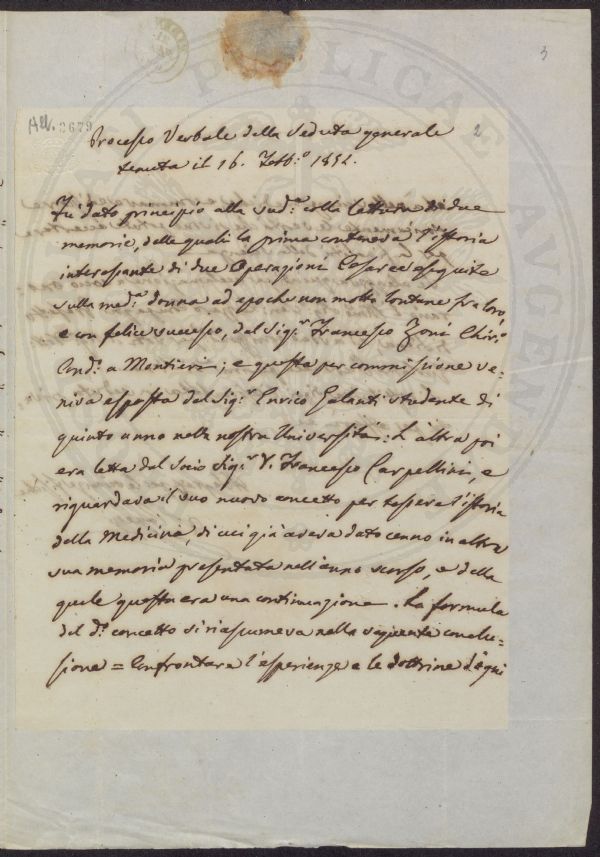 3
All. 3679
2
Processo Verbale della Seduta generale
tenuta il 16. Febb.º 1852.
Fu dato principio alla sud.ª colla lettura di due
memorie, delle quali la prima conteneva l'istoria
interessante di due Operazioni Cesaree eseguite
sulla med.ª donna ad epoche non molto lontane fra loro,
e con felice successo, dal Sig.r Francesco Zoni Chir.º
Cond.º a Montieri; e questa per commissione ve-
niva esposta dal Sig.r Enrico Galanti studente di
quinto anno nella nostra Università: L'altra poi
era letta dal Socio Sig.r D. Francesco Carpellini, e
riguardava il suo nuovo concetto per tessere l'istoria
della Medicina, di cui già aveva dato cenno in altra
sua memoria presentata nell'anno scorso, e della
quale questa era una continuazione. La formula
del d.º concetto si riassumeva nella seguente conclu=
sione = Confrontare l'esperienze e le dottrine d'ogni